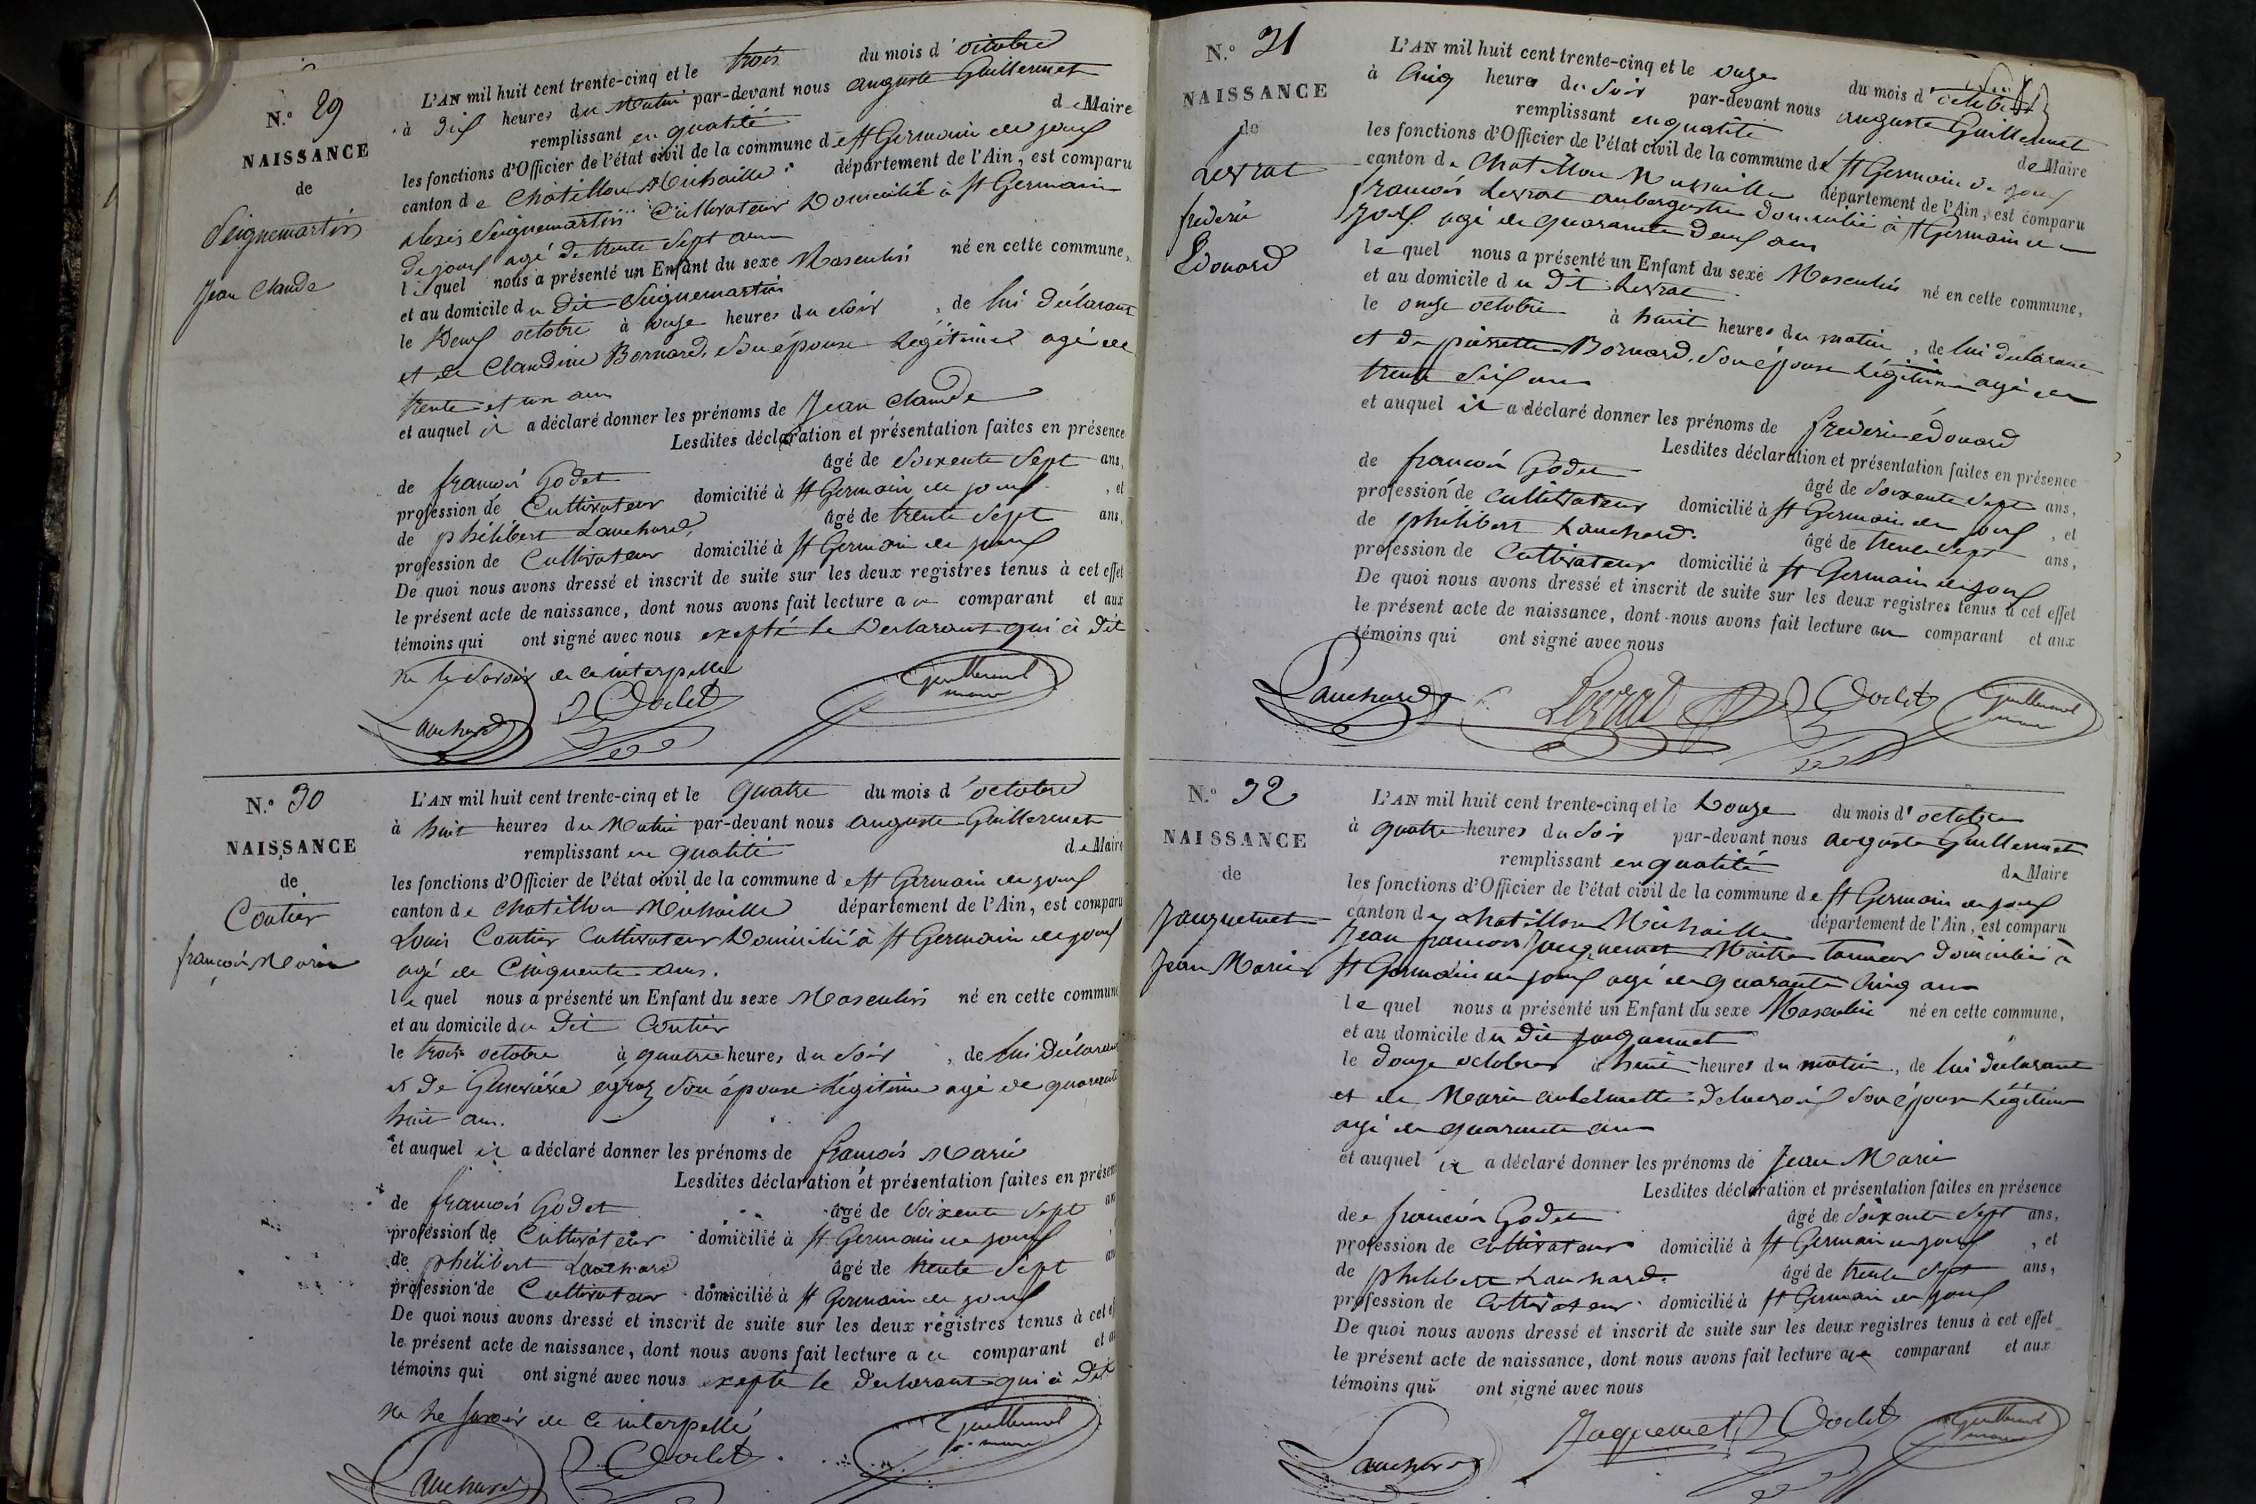 N.° 29
NAISSANCE
de
Seignemartin
Jean Claude
L'AN mil huit cent trente-cinq et le trois du mois d'octobre
à dix heures du Matin par-devant nous auguste Guillermet
remplissant en qualité de Maire
les fonctions d'Officier de l'état civil de la commune de St Germain de joux
canton de Chatillon Michaille département de l'Ain, est comparu
alexis Seignemartin Cultivateur Domicilié à St Germain
de joux agé de trente Sept ans
lequel nous a présenté un Enfant du sexe Masculin né en cette commune,
et au domicile du Dit Seignemartin
le Deux octobre à onze heures du soir, de lui déclarant
et de Claudine Bornard, Son épouse Légitime agé de
trente et un ans
et auquel il a déclaré donner les prénoms de Jean Claude
Lesdites déclaration et présentation faites en présence
de françois Godet âgé de Soixente Sept ans,
profession de Cultivateur domicilié à St Germain de joux, et
de philibert Lanchard, âgé de trente Sept ans,
profession de Cultivateur domicilié à St Germain de joux
De quoi nous avons dressé et inscrit de suite sur les deux registres tenus à cet effet
le présent acte de naissance, dont nous avons fait lecture au comparant et aux
témoins qui ont signé avec nous excepté le Declarant qui à dit
ne le Savoir de ce interpellé
Lanchard Godet Guillermet maire
N.° 30
NAISSANCE
de
Coutier
françois Marie
L'AN mil huit cent trente-cinq et le quatre du mois d'octobre
à huit heures du Matin par-devant nous auguste Guillermet
remplissant en qualité de Maire
les fonctions d'Officier de l'état civil de la commune de St Germain de joux
canton de Chatillon Michaille département de l'Ain, est comparu
Louis Coutier Cultivateur Domicilié à St Germain de joux
agé de Cinquente ans.
lequel nous a présenté un Enfant du sexe Masculin né en cette commune
et au domicile du Dit Coutier
le trois octobre à quatre heures du Soir, de lui Déclarant
et de Genevieve egraz Son épouse Légitime agé de quarante
huit ans.
et auquel il a déclaré donner les prénoms de françois Marie
Lesdites déclaration et présentation faites en présen
de françois Godet âgé de Soixente Sept an
profession de Cultivateur domicilié à St Germain de joux
de philibert Lanchard âgé de trente Sept an
profession de Cultivateur domicilié à St Germain de joux
De quoi nous avons dressé et inscrit de suite sur les deux registres tenus à cet ef
le présent acte de naissance, dont nous avons fait lecture au comparant et au
témoins qui ont signé avec nous excepté le declarant qui à Dit
ne le Savoir de ce interpellé
Lanchard Godet Guillermet maire
N.° 31
NAISSANCE
de
Levrat
frederic
Edouard
L'AN mil huit cent trente-cinq et le onze du mois d'octobre
à Cinq heures du Soir par-devant nous auguste Guillermet
remplissant en qualité de Maire
les fonctions d'Officier de l'état civil de la commune de St Germain de joux
canton de Chatillon Michaille département de l'Ain, est comparu
françois Levrat aubergiste domicilié à St Germain de
joux agé de quarante deux ans
lequel nous a présenté un Enfant du sexe Masculin né en cette commune,
et au domicile du Dit Levrat
le onze octobre à huit heures du matin, de lui declarant
et de pierrette Bornard, Son épouse Légitime agé de
trente Six ans
et auquel il a déclaré donner les prénoms de frederic édouard
Lesdites déclaration et présentation faites en présence
de françois Godet âgé de Soixente Sept ans,
profession de Cultivateur domicilié à St Germain de joux, et
de philibert Lanchard. âgé de trente Sept ans,
profession de Cultivateur domicilié à St Germain de joux
De quoi nous avons dressé et inscrit de suite sur les deux registres tenus à cet effet
le présent acte de naissance, dont nous avons fait lecture au comparant et aux
témoins qui ont signé avec nous
Lanchard Levrat Godet Guillermet maire
N.° 32
NAISSANCE
de
Jauquemet
Jean Marie
L'AN mil huit cent trente-cinq et le Douze du mois d'octobre
à quatre heures du Soir par-devant nous auguste Guillermet
remplissant en qualité de Maire
les fonctions d'Officier de l'état civil de la commune de St Germain de joux
canton de Chatillon Michaille département de l'Ain, est comparu
Jean françois Jauquemet Maitre tanneur domicilié à
St Germain de joux agé de quarante Cinq ans
lequel nous a présenté un Enfant du sexe Masculin né en cette commune,
et au domicile du Dit Jauquemet
le douze octobre à huit heures du matin, de lui déclarant
et de Marie Son épouse Légitime
agé de quarante ans
et auquel il a déclaré donner les prénoms de Jean Marie
Lesdites déclaration et présentation faites en présence
de françois Godet âgé de Soixente Sept ans,
profession de Cultivateur domicilié à St Germain de joux, et
de philibert Lanchard. âgé de trente Sept ans,
profession de Cultivateur domicilié à St Germain de joux
De quoi nous avons dressé et inscrit de suite sur les deux registres tenus à cet effet
le présent acte de naissance, dont nous avons fait lecture au comparant et aux
témoins qui ont signé avec nous
Lanchard Jaquemet Godet Guillermet maire